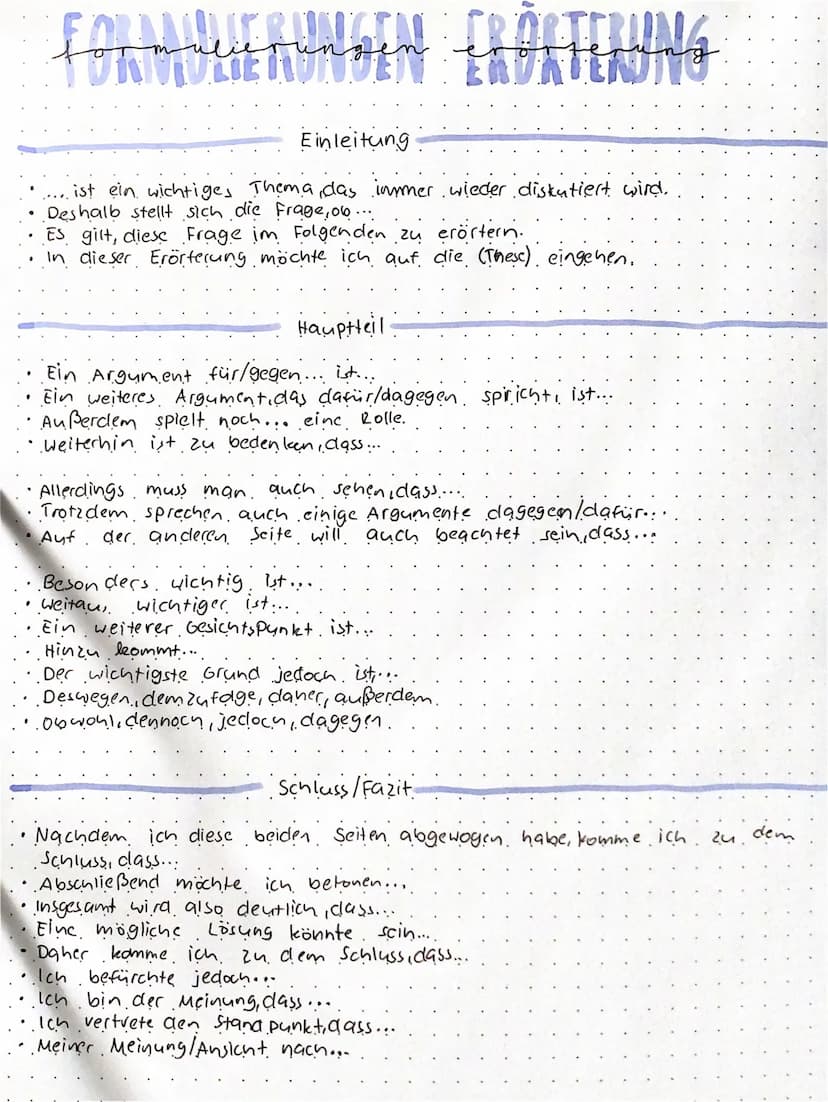 FORMULIERUNGEN ERÖRTERUNG
formulierungen erörterung
Einleitung
• ... ist ein wichtiges Thema, das immer wieder diskutiert wird.
• Deshalb stellt sich die Frage, ob...
• Es gilt, diese Frage im Folgenden zu erörtern.
• In dieser Erörterung möchte ich auf die (These) eingehen.
Hauptteil
• Ein Argument für/gegen... ist...
• Ein weiteres Argument, das dafür/dagegen spricht, ist...
• Außerdem spielt noch... eine Rolle.
• Weiterhin ist zu bedenken, dass...
• Allerdings muss man auch sehen, dass...
• Trotzdem sprechen auch einige Argumente dagegen/dafür...
• Auf der anderen Seite will auch beachtet sein, dass...
• Besonders wichtig ist...
• Weitaus wichtiger ist...
• Ein weiterer Gesichtspunkt ist...
• Hinzu kommt...
• Der wichtigste Grund jedoch ist...
• Deswegen, demzufolge, daher, außerdem
• obwohl, dennoch, jedoch, dagegen
Schluss/Fazit
• Nachdem ich diese beiden Seiten abgewogen habe, komme ich zu dem
Schluss, dass...
• Abschließend möchte ich betonen...
• Insgesamt wird also deutlich, dass...
• Eine mögliche Lösung könnte sein...
• Daher komme ich zu dem Schluss, dass...
• Ich befürchte jedoch...
• Ich bin der Meinung, dass...
• Ich vertrete den Standpunkt, dass...
• Meiner Meinung/Ansicht nach...